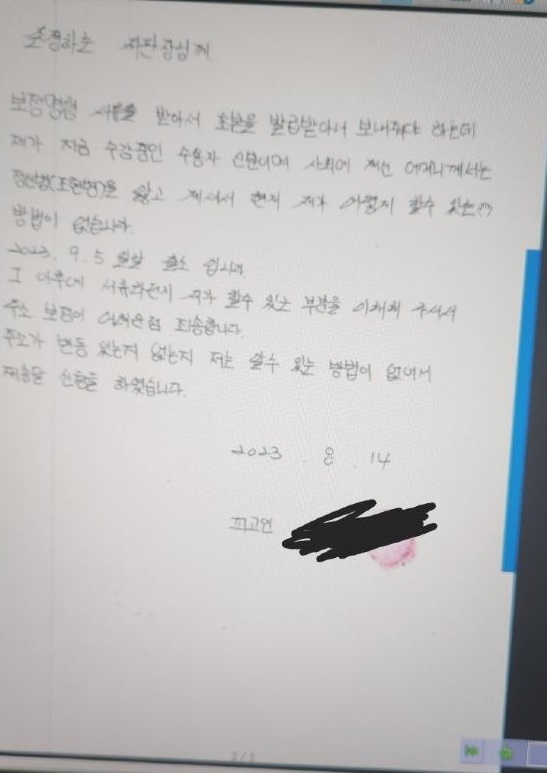 존경하는 재판장님께
보정명령 서류를 받아서 초본을 발급받아서 보내줘야 하는데
제가 지금 수감중인 수용자 신분이며 사회에 계신 어머니께서는
정신병(조현병)을 앓고 계셔서 현재 제가 어떻게 할수 있는
방법이 없습니다.
2023. 9. 5 출소 입니다.
그 이후에 서류라던지 제가 할수 있는 부분을 이해해 주셔서
주소 보정이 어려운점 죄송합니다.
주소가 변동 있는지 없는지 저는 알수 있는 방법이 없어서
재송달 신청을 하였습니다.
2023 8 . 14
피고인